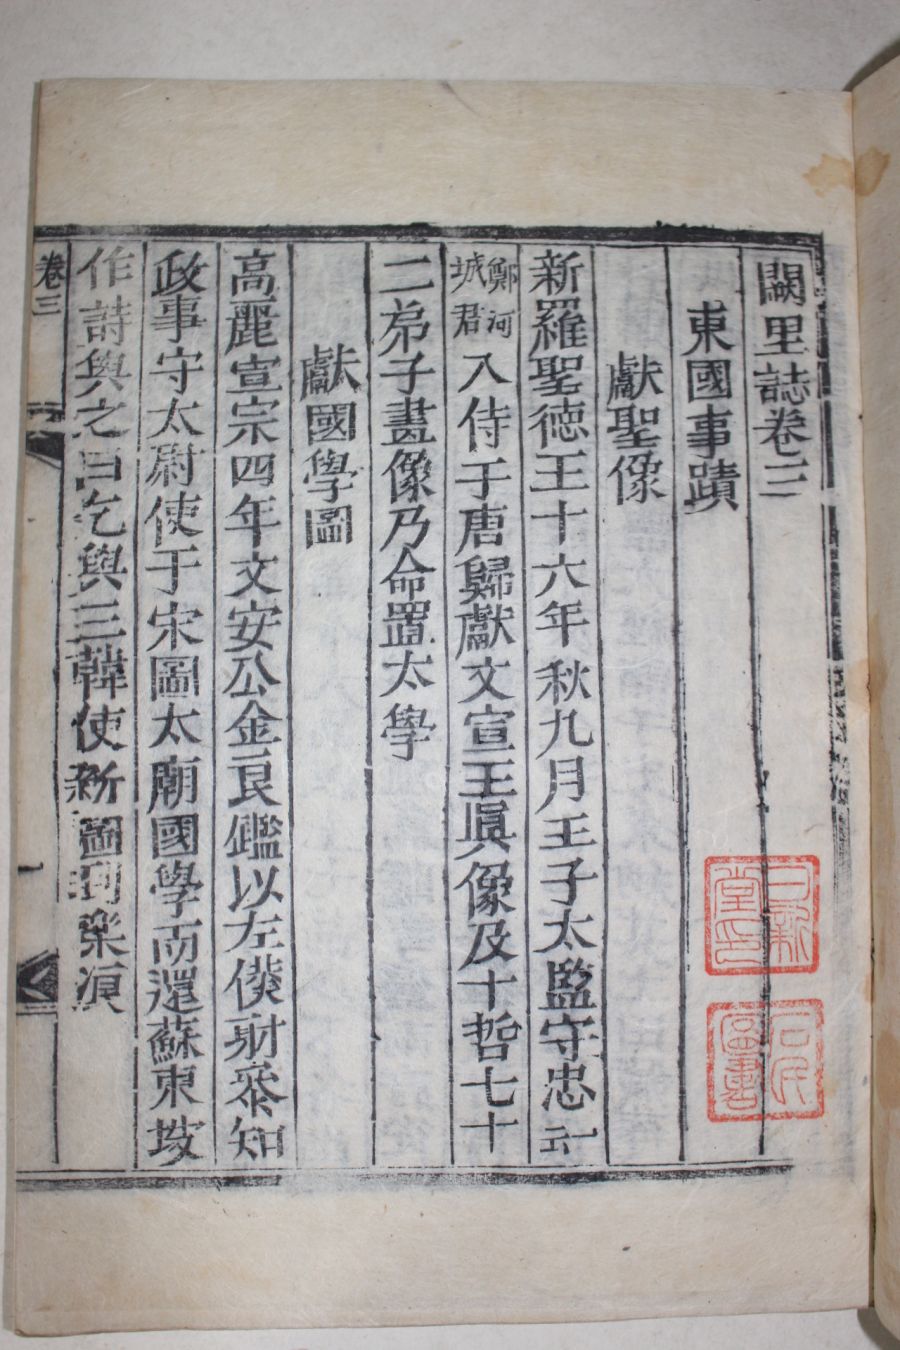 闕里誌卷三
東國事蹟
獻聖像
新羅聖德王十六年秋九月王子太監守忠 云
鄭河
城君
入侍于唐歸獻文宣王眞像及十哲七十
二弟子畫像乃命置太學
獻國學圖
高麗宣宗四年文安公金良鑑以左僕射叅知
政事守太尉使于宋圖太廟國學而還蘇東坡
作詩與之曰乞與三韓使新圖到樂浪
卷三
一
日新
堂印